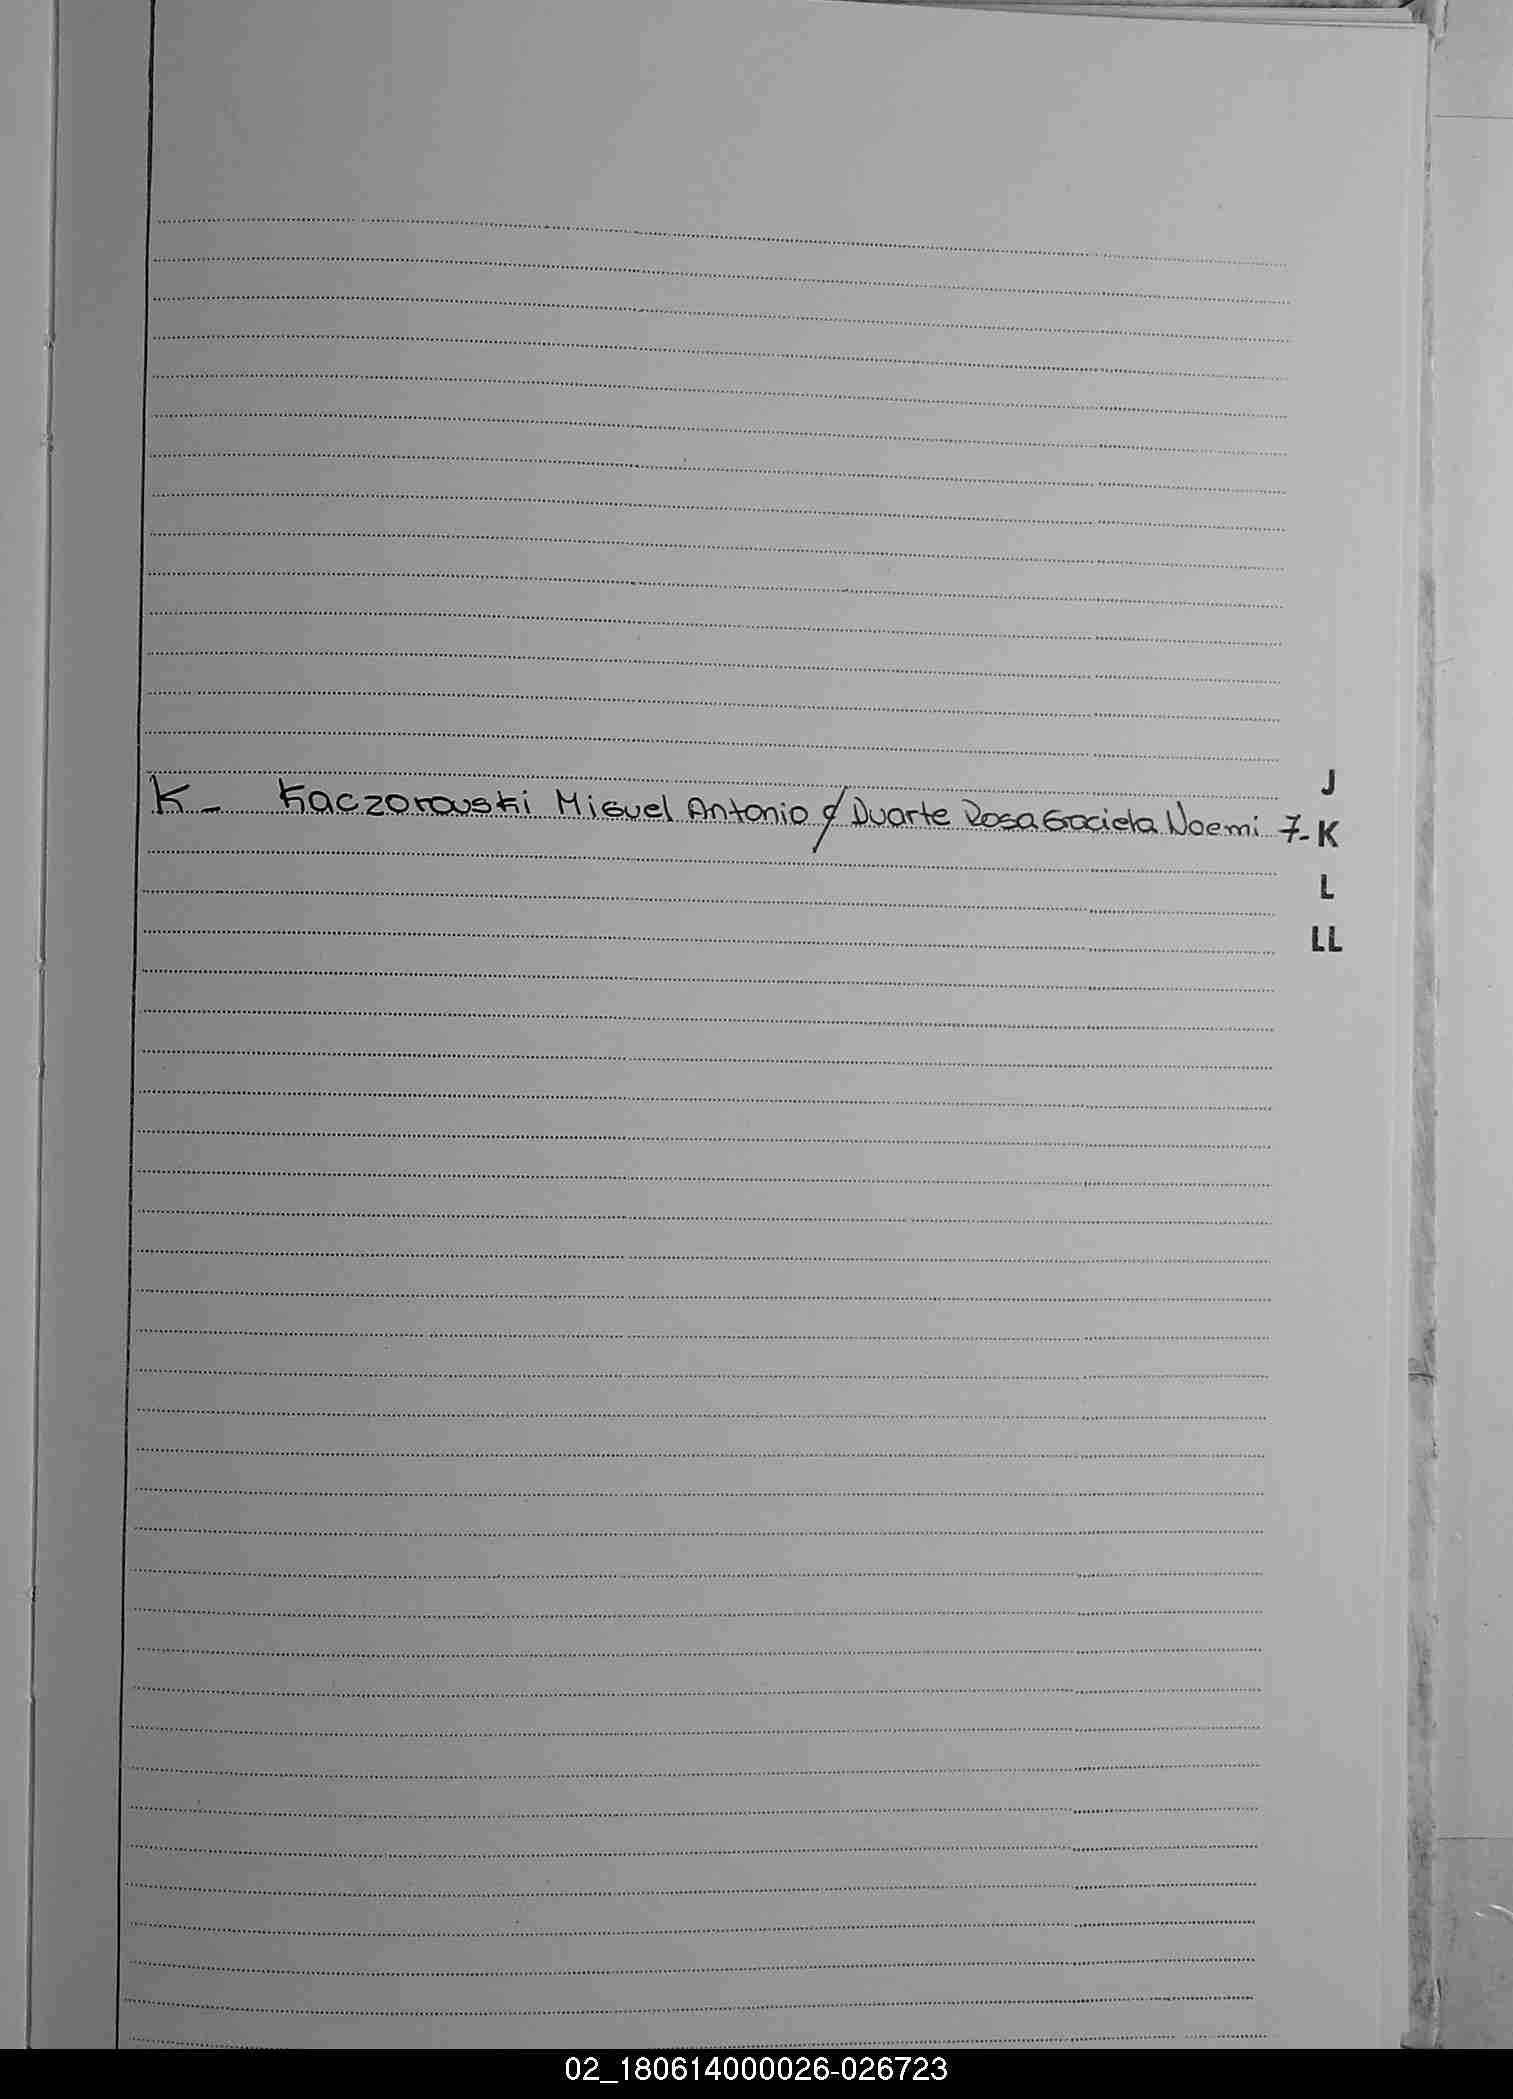 J
K- Kaczorouski Miguel Antonio c/ Duarte Rosa Graciela Noemi 7- K
L
LL
02_180614000026-026723